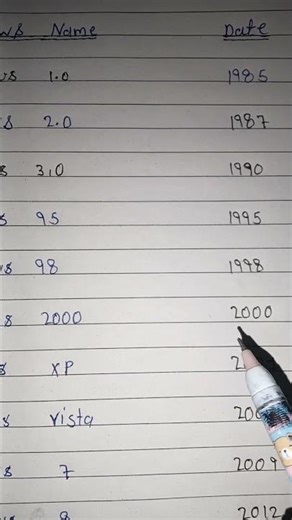 ws Name Date
ws 1.0 1985
s 2.0 1987
s 3.0 1990
s 95 1995
ws 98 1998
s 2000 2000
s XP
s Vista
s 7 2009
8 2012